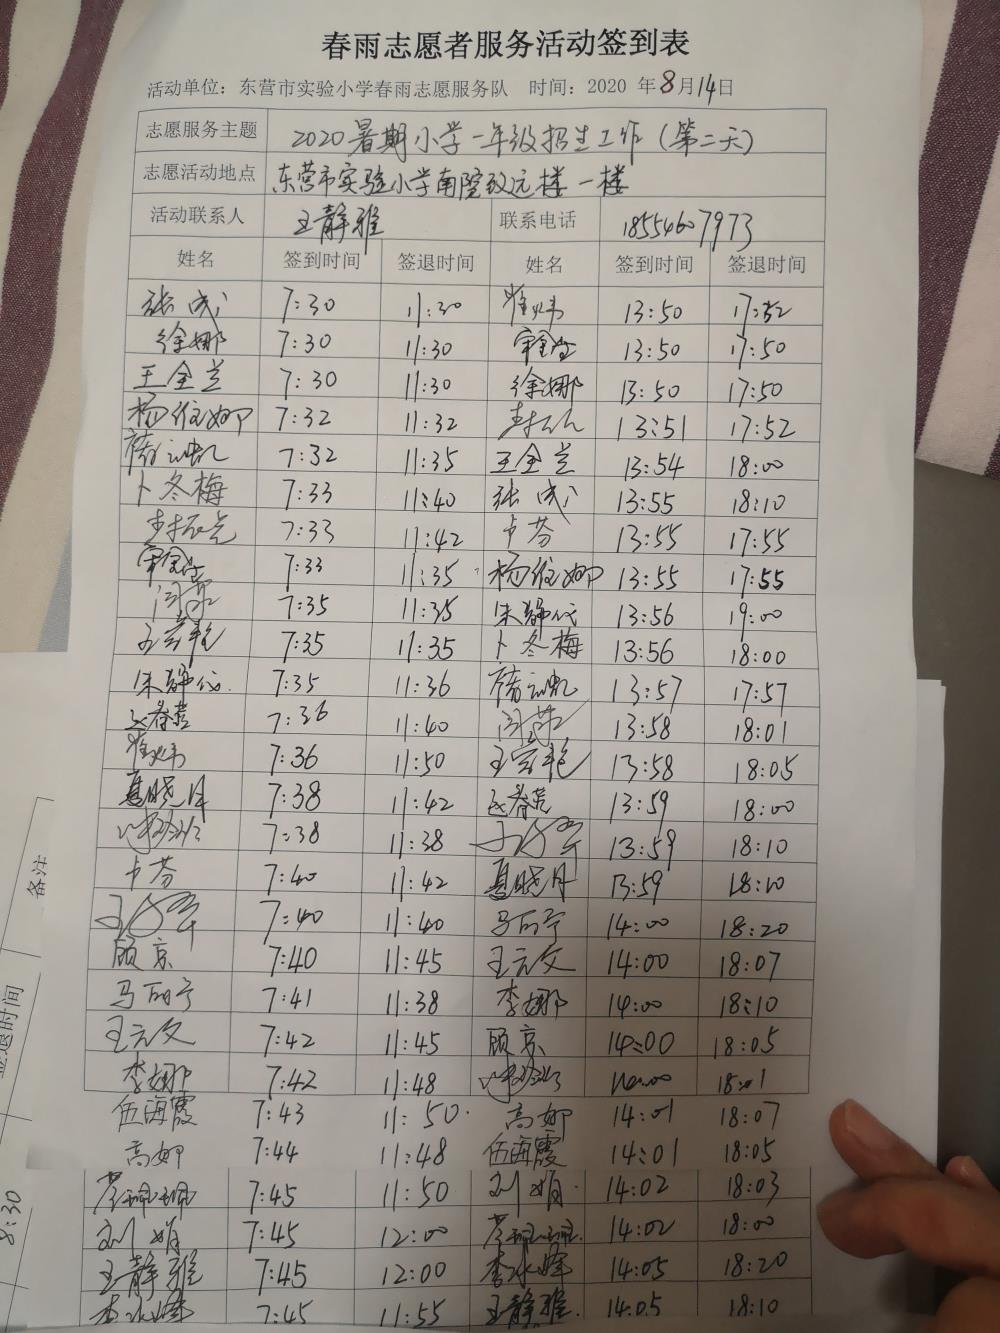 春雨志愿者服务活动签到表
活动单位：东营市实验小学春雨志愿服务队 时间：2020 年 8月14日
志愿服务主题 2020暑期小学一年级招生工作（第二天）
志愿活动地点 东营市实验小学南院致远楼一楼
活动联系人 王静雅 联系电话 18554607973
姓名 签到时间 签退时间 姓名 签到时间 签退时间
张成 7:30 11:30 13:50 17:52
徐娜 7:30 11:30 13:50 17:50
王金兰 7:30 11:30 徐娜 13:50 17:50
杨维娜 7:32 11:32 13:51 17:52
7:32 11:35 王金兰 13:54 18:00
卜冬梅 7:33 11:40 张成 13:55 18:10
7:33 11:42 卞芬 13:55 17:55
7:33 11:35 杨维娜 13:55 17:55
闫茹 7:35 11:35 朱静依 13:56 19:00
7:35 11:35 卜冬梅 13:56 18:00
朱静依 7:35 11:36 13:57 17:57
7:36 11:40 闫茹 13:58 18:01
7:36 11:50 13:58 18:05
夏晓月 7:38 11:42 13:59 18:00
7:38 11:38 13:59 18:10
卞芬 7:40 11:42 夏晓月 13:59 18:10
7:40 11:40 马丽宁 14:00 18:20
顾京 7:40 11:45 王云文 14:00 18:07
马丽宁 7:41 11:38 李娜 14:00 18:10
王云文 7:42 11:45 顾京 14:00 18:05
李娜 7:42 11:48 18:01
伍海霞 7:43 11:50 高娜 14:01 18:07
高娜 7:44 11:48 伍海霞 14:01 18:05
7:45 11:50 刘娟 14:02 18:03
刘娟 7:45 12:00 14:02 18:00
王静雅 7:45 12:00 李冰峰 14:05 18:20
李冰峰 7:45 11:55 王静雅 14:05 18:10
备注
签退时间
8:30